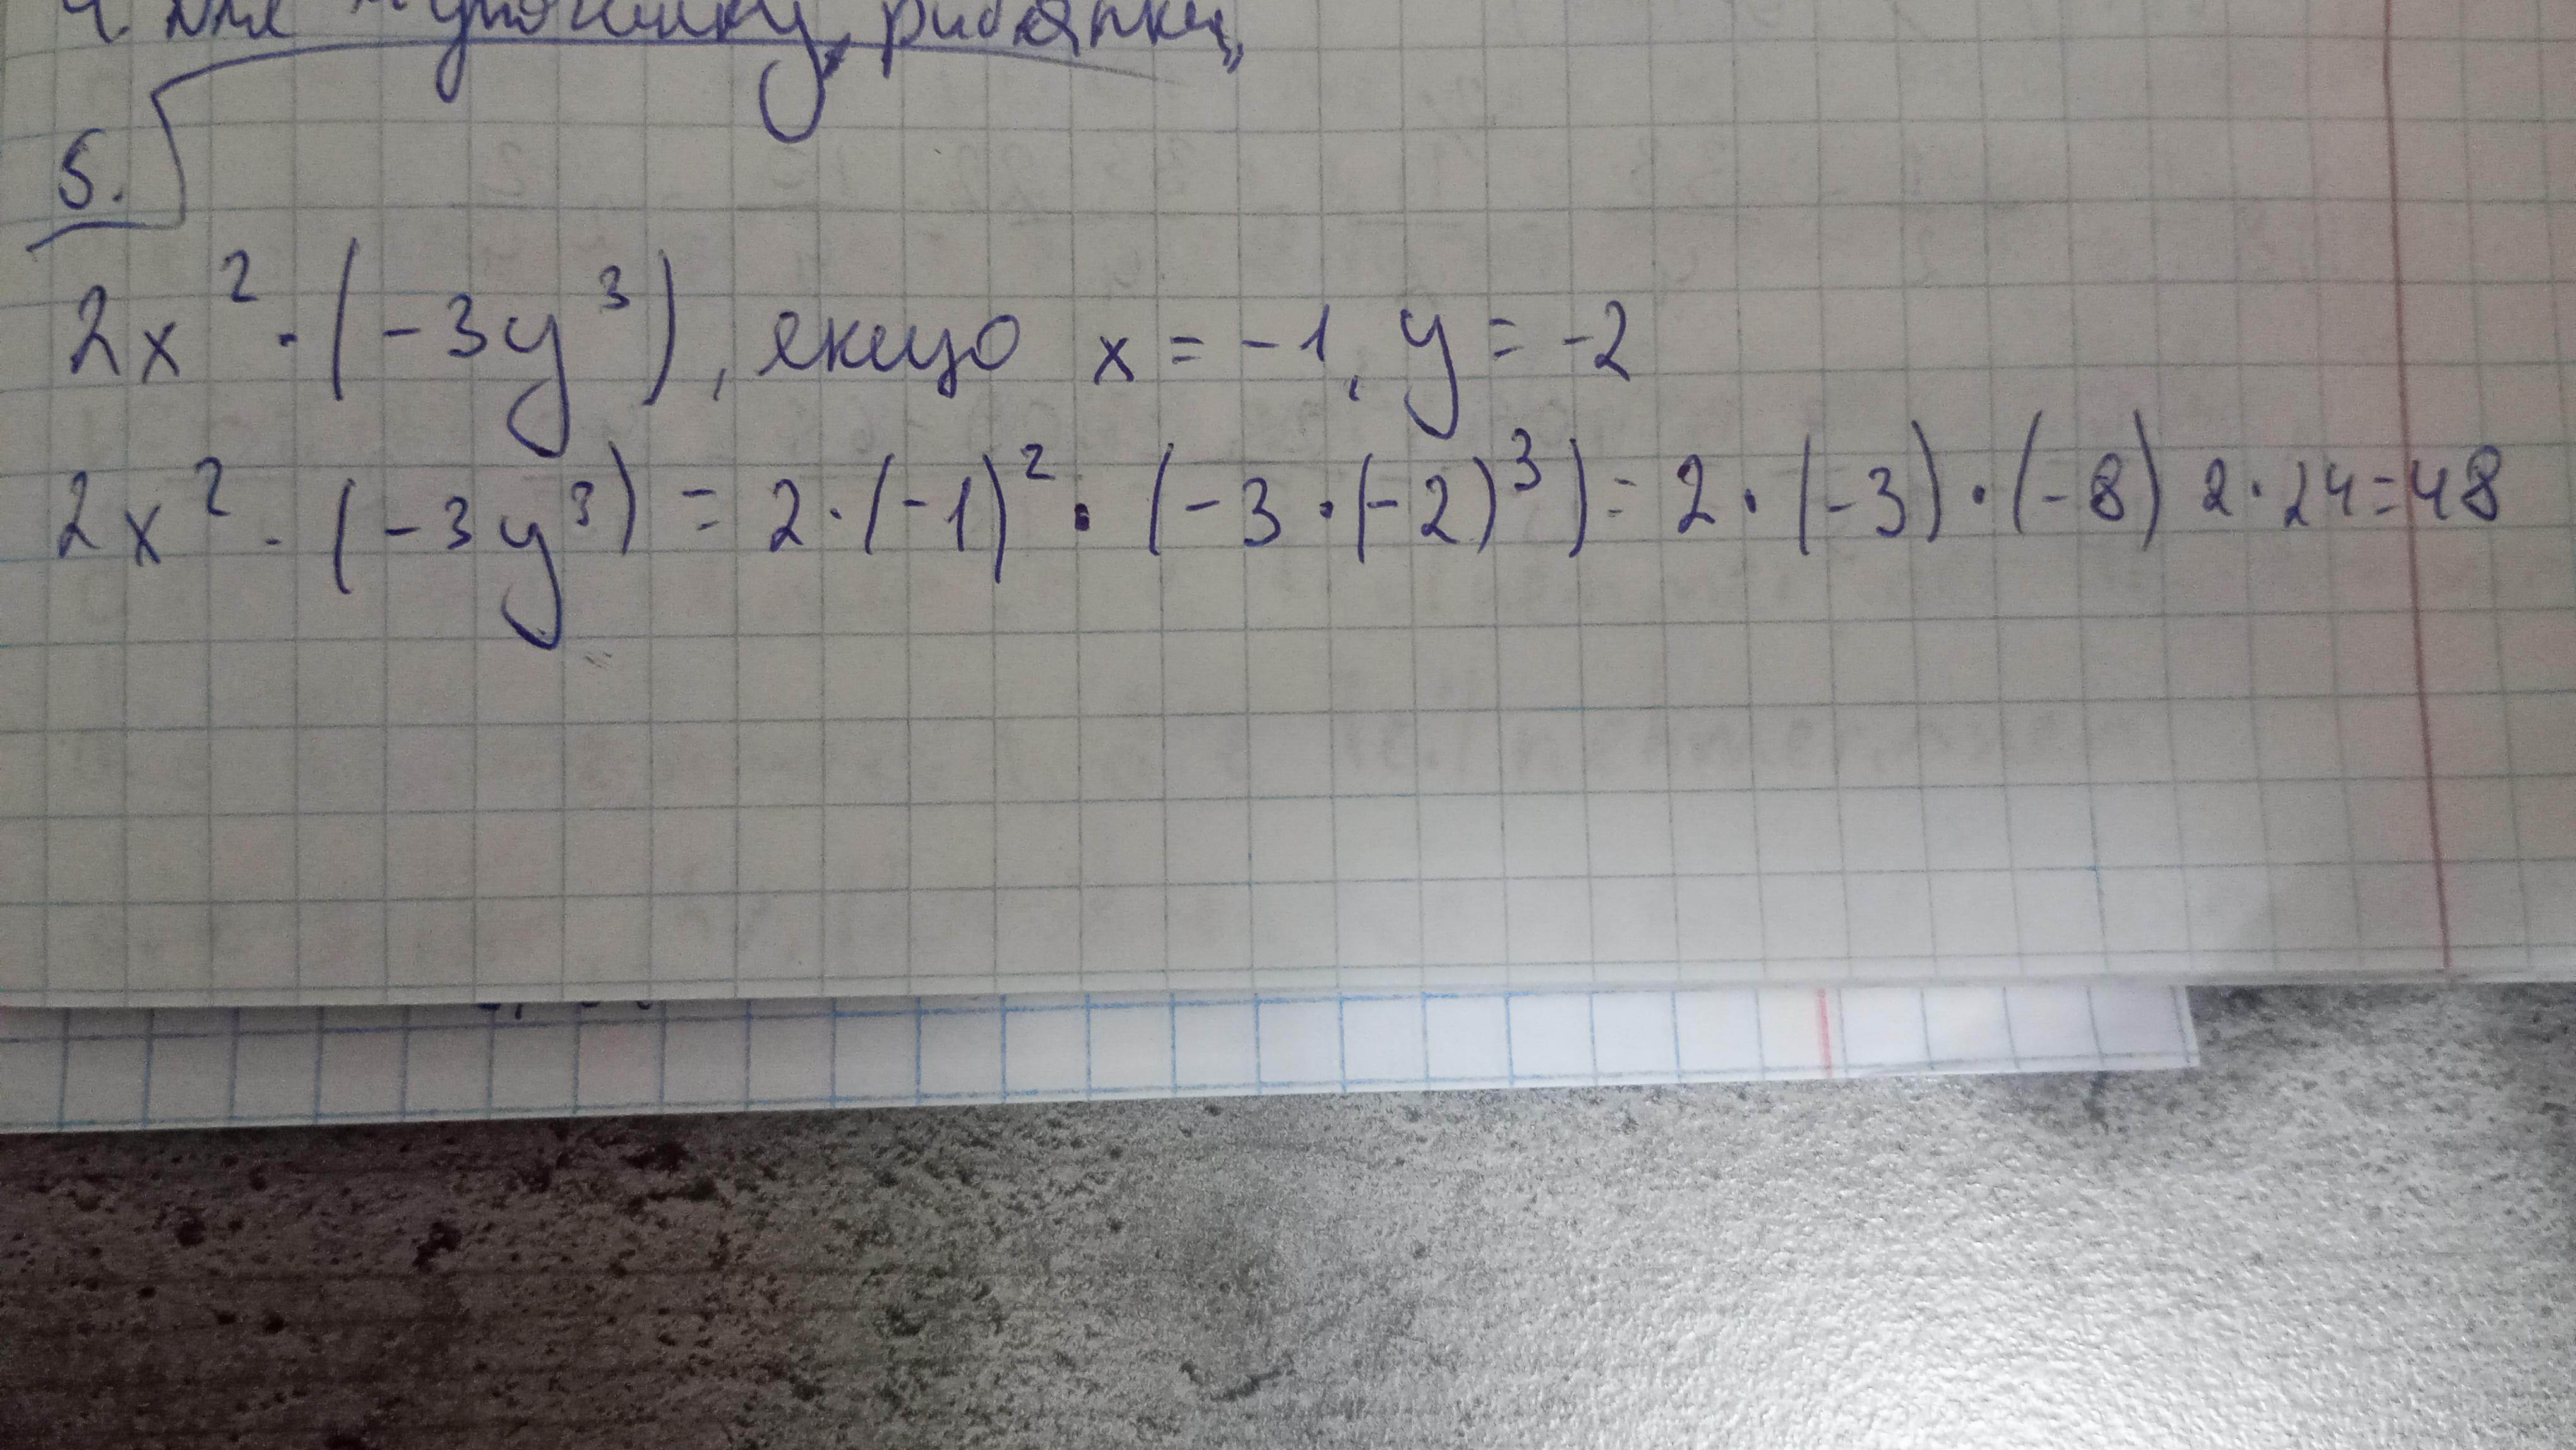 4. Для
5.
2x² · (-3y³), якщо x = -1, y = -2
2x² · (-3y³) = 2·(-1)² · (-3·(-2)³) = 2·(-3)·(-8) 2·24=48